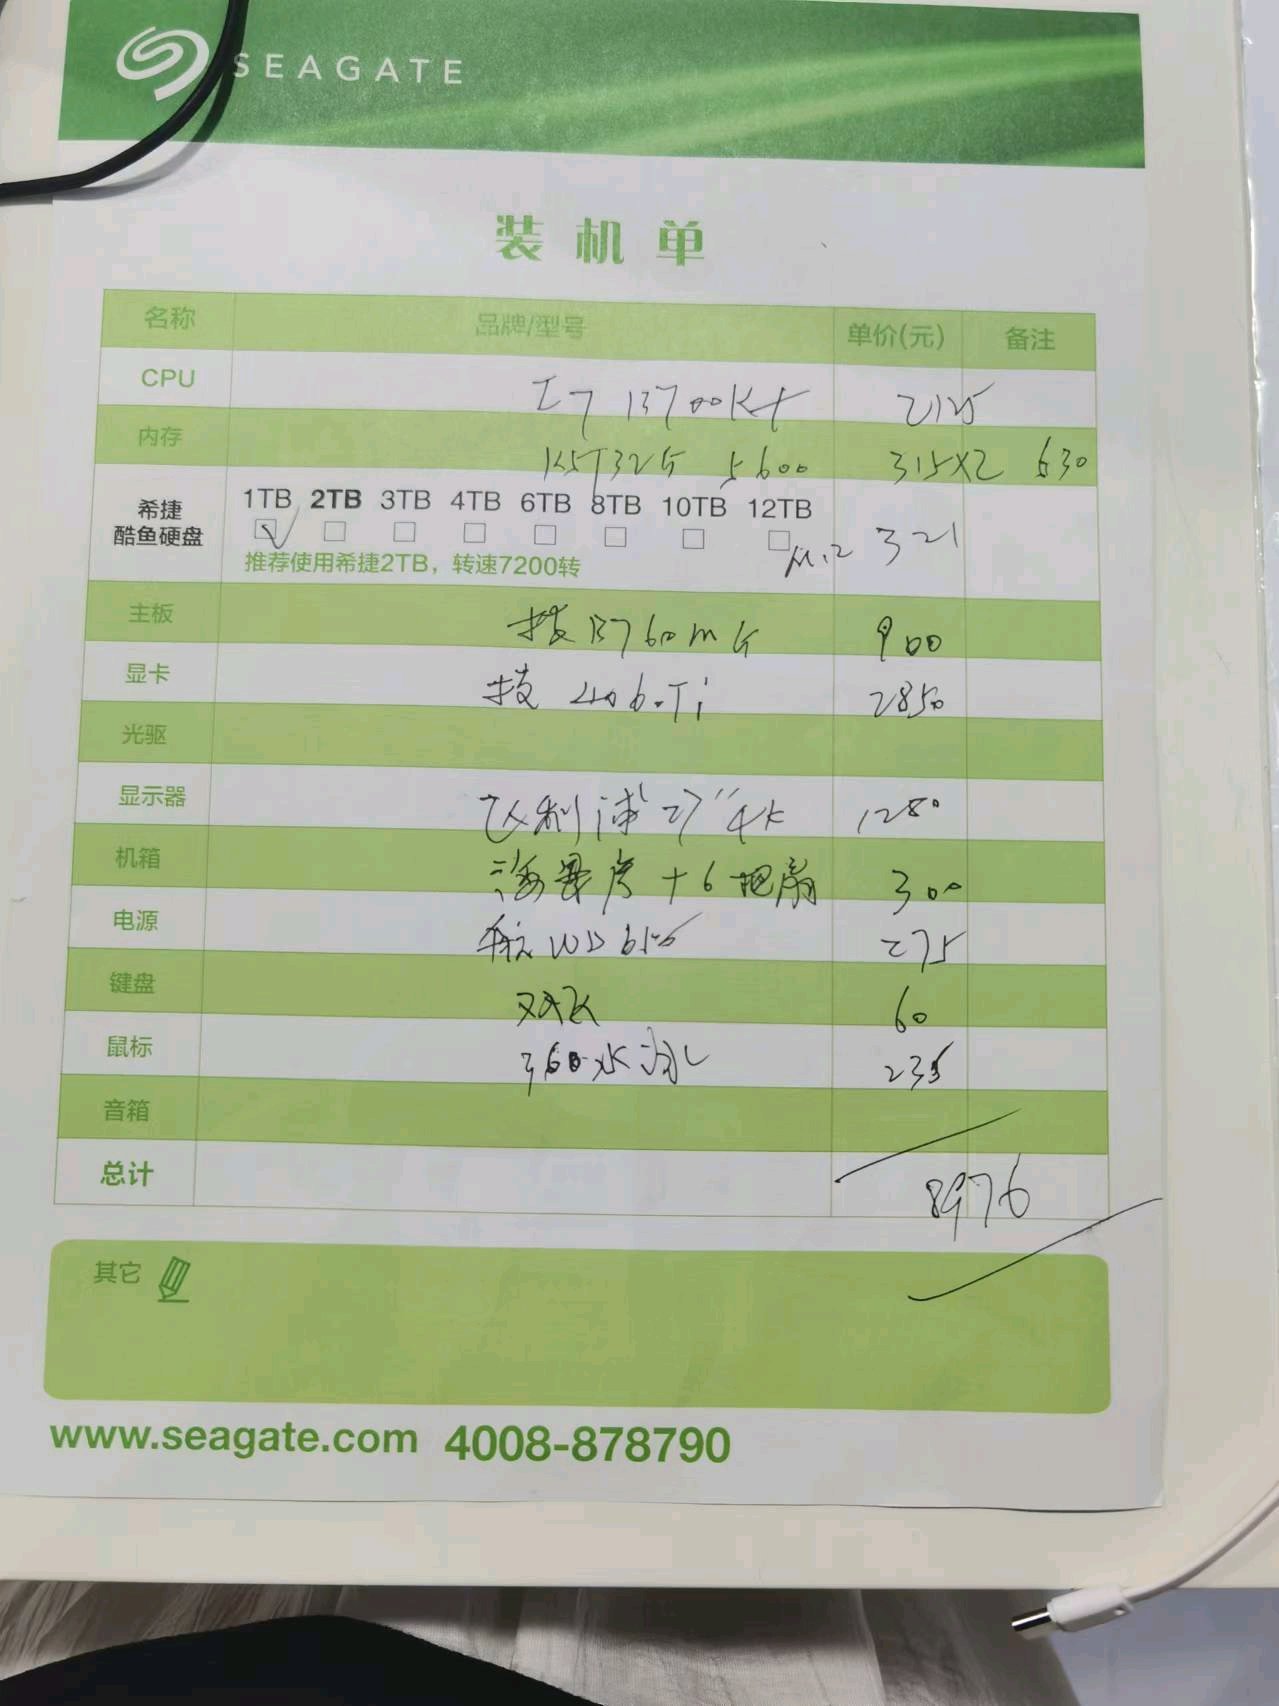 SEAGATE
装机单
名称 品牌/型号 单价(元) 备注
CPU I7 13700KF 2125
内存 32G 5600 315X2 630
希捷酷鱼硬盘 1TB 2TB 3TB 4TB 6TB 8TB 10TB 12TB M.2 321
推荐使用希捷2TB，转速7200转
主板 技 B760m G 900
显卡 技 4060Ti 2850
光驱
显示器 飞利浦 27" 4K 1280
机箱 海景房+6把扇 300
电源 航 WD 650 275
键盘 双飞 60
鼠标 360水冷 235
音箱
总计 8976
其它
www.seagate.com 4008-878790